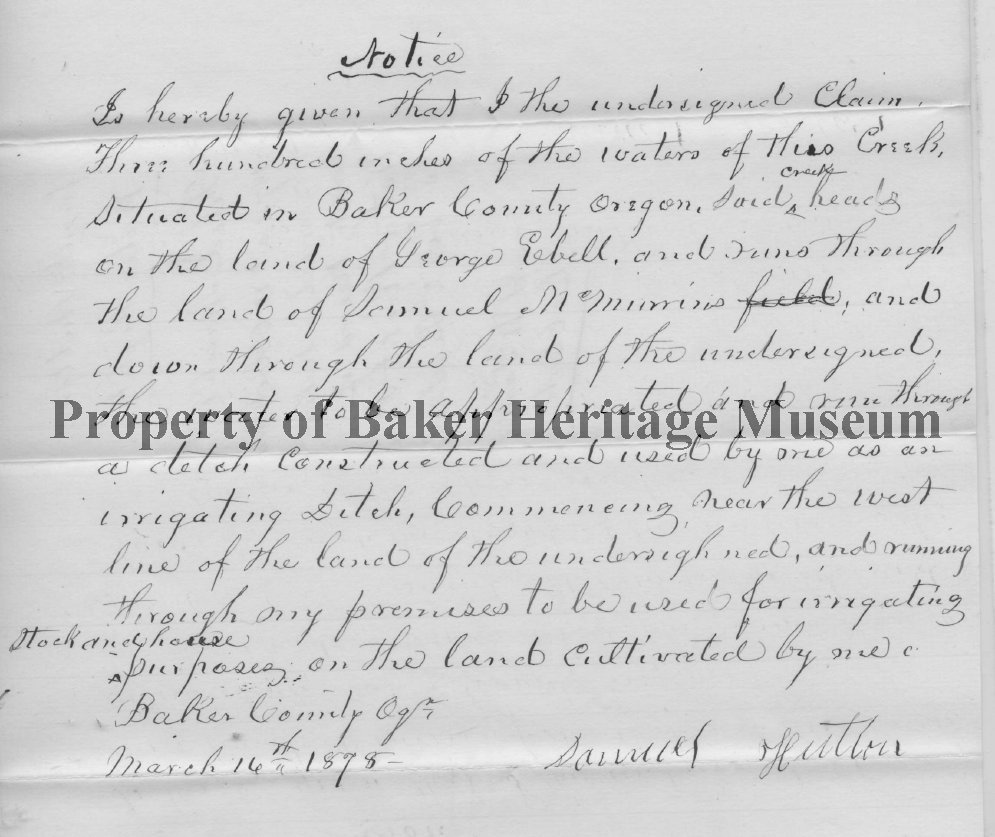 Notice
Is hereby given that I the undersigned Claim.
Three hundred inches of the waters of this Creek,
creek
Situated in Baker County Oregon. Said ‸ heads
on the land of George Ebell, and runs through
the land of Samuel McMurrins ~~field~~, and
down through the land of the undersigned,
the water to be appropriated and run through
Property of Baker Heritage Museum
a detch Constructed and used by me as an
irrigating Ditch, Commencing near the west
line of the land of the undersighned, and running
through my premises to be used for irrigating
Stock and house
‸ purposes, on the land cultivated by me
Baker County Ogn
March 16th 1878
Samuel Hutton